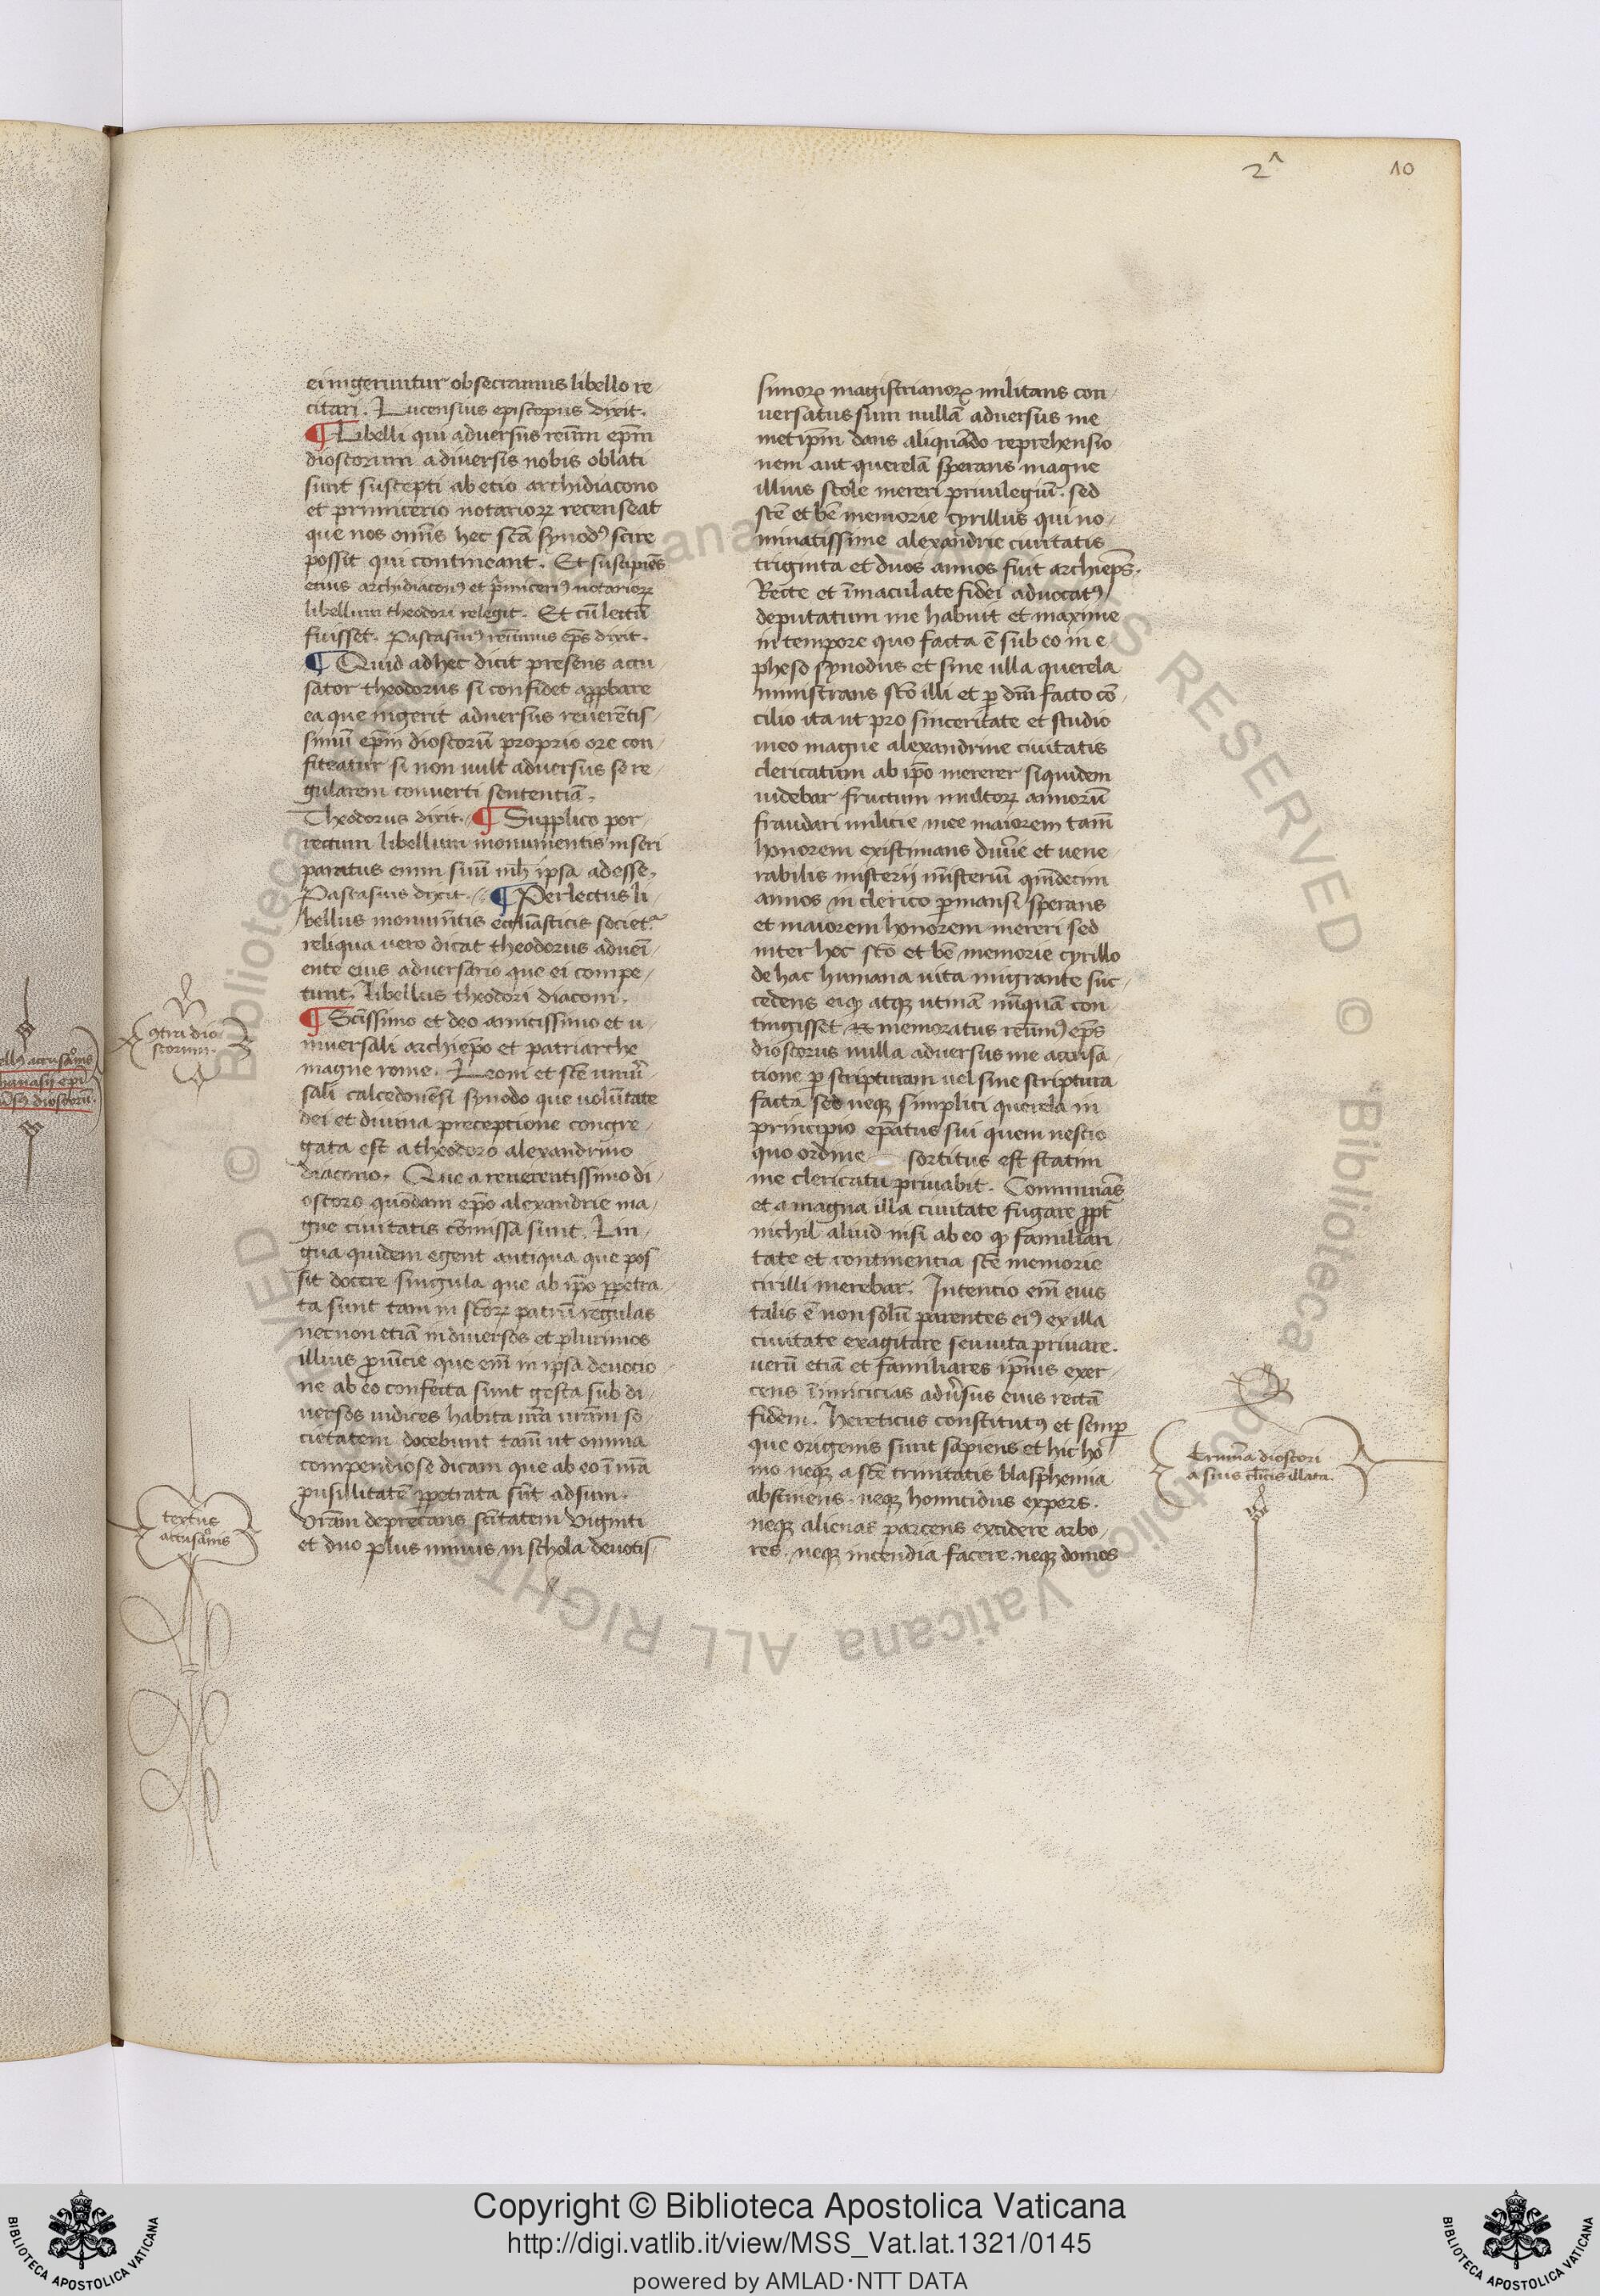 2ᴬ
10
ei ingeruntur obsecramus libello re
citari. Lucensius episcopus dixit.
¶ Libelli qui adversus reum̄ ep̄m
dioscorum a diversis nobis oblati
sunt suscepti ab etio archidiacono
et primicerio notarioꝝ recenseat
que nos om̄is hec sc̄a synodꝰ scire
possit qui contineant. Et suscipiēs
etius archidiaconꝰ et p̄miceriꝰ notarioꝝ
libellum theodori relegit. Et cū lectū
fuisset. Pascasinꝰ reūmus ep̄s dixit.
¶ Quid ad hec dicit presens accu
sator theodorus si confidet app̄bare
ea que ingerit adversus reverētis
simū ep̄m dioscorū proprio ore con
fiteatur si non vult adversus se re
gularem converti sententiā.
Theodorus dixit. ¶ Supplico por
rectum libellum monumentis inseri
paratus enim sum mh̄ ipsa adesse.
Pascasius dixit. ¶ Perlectus li
bellus monum̄tis eccl̄iasticis societꝛ
reliqua vero dicat theodorus adueī
ente eius adversario que ei compe
tunt. libellus theodori diaconi.
¶ Sc̄issimo et deo amicissimo et u
niversali archiep̄o et patriarche
magne rome. Leoni et sc̄e univ̄
sali calcedonēsi synodo que volūtate
dei et divina preceptione congre
gata est a theodoro alexandrino
diacono. Que a reverentissimo di
oscoro quōdam ep̄o alexandrie ma
gne civitatis cōmissa sunt. Lin
gua quidem egent antiqua que pos
sit docere singula que ab ip̄o ꝑpetra
ta sunt tam in sc̄oꝝ patrū regulas
necnon etiā in diversos et plurimos
illius ꝓvīcie que em̄ in ipsa devocio
ne ab eo confecta sunt gesta sub di
versos iudices habita nr̄a vr̄am so
cietatem docebunt tam̄ ut omnia
compendiose dicam que ab eo ī mā
pusillitatē ꝑpetrata sūt adsum.
Vr̄am deprecans sc̄itatem viginti
et duo plus minus in schola devotis
simoꝝ magistrianoꝝ militans con
versatus sum nullā adversus me
metip̄m dans aliquādo reprehensio
nem aut querelā sperans magne
illius scole mereri privilegiū. sed
sc̄e et bē memorie cyrillus qui no
minatissime alexandrie civitatis
triginta et duos annos fuit archiep̄s.
Recte et īmaculate fidei advocatꝰ
deputatum me habuit et maxime
in tempore quo facta ē sub eo in e
pheso synodus et sine ulla querela
ministrans sc̄o illi et ꝑ dūi facto cō
cilio ita ut pro sinceritate et studio
meo magne alexandrine civitatis
clericatum ab ip̄o mererer siquidem
videbar fructum multoꝝ annorū
fraudari milicie mee maiorem tam̄
honorem existimans divīe et vene
rabilis misterij mīsteriū quīdecim
annos in clerico ꝑmansi sperans
et maiorem honorem mereri sed
inter hec sc̄o et bē memorie cyrillo
de hac humana vita migrante suc
cedens eiꝙ atqꝫ utinā nūquā con
tingisset memoratus reūmꝰ ep̄s
dioscorus nulla adversus me accusa
tione ꝑ scripturam vel sine scriptura
facta sed neqꝫ simplici querela in
principio ep̄atus sui quem nescio
quo ordine sortitus est statim
me clericatu privabit. Cominās
et a magna illa civitate fugare ꝓpt̄
nichil aliud nisi ab eo ꝙ familiari
tate et continencia sc̄e memorie
cirilli merebar. Intencio em̄ eius
talis ē non solū parentes eiꝰ ex illa
civitate exagitare seu vita privare.
verū etiā et familiares ip̄ius exer
cens īimicicias adv̄sus eius rectā
fidem. Hereticus constitutꝰ et semꝑ
que origenis sunt sapiens et hic ho
mo neqꝫ a sc̄e trinitatis blasphemia
abstinens. neqꝫ homicidiis expers.
neqꝫ alienas parcens excidere arbo
res. neqꝫ incendia facere. neqꝫ domos
ꝯtra dio
scorum.
textus
accusac̄oīs
Crīmia dioscori
a suis cl̄icis illata
accusac̄oīs
dioscorū.
Copyright © Biblioteca Apostolica Vaticana
http://digi.vatlib.it/view/MSS_Vat.lat.1321/0145
powered by AMLAD·NTT DATA
BIBLIOTECA APOSTOLICA VATICANA
BIBLIOTECA APOSTOLICA VATICANA
© Biblioteca Apostolica Vaticana ALL RIGHTS RESERVED